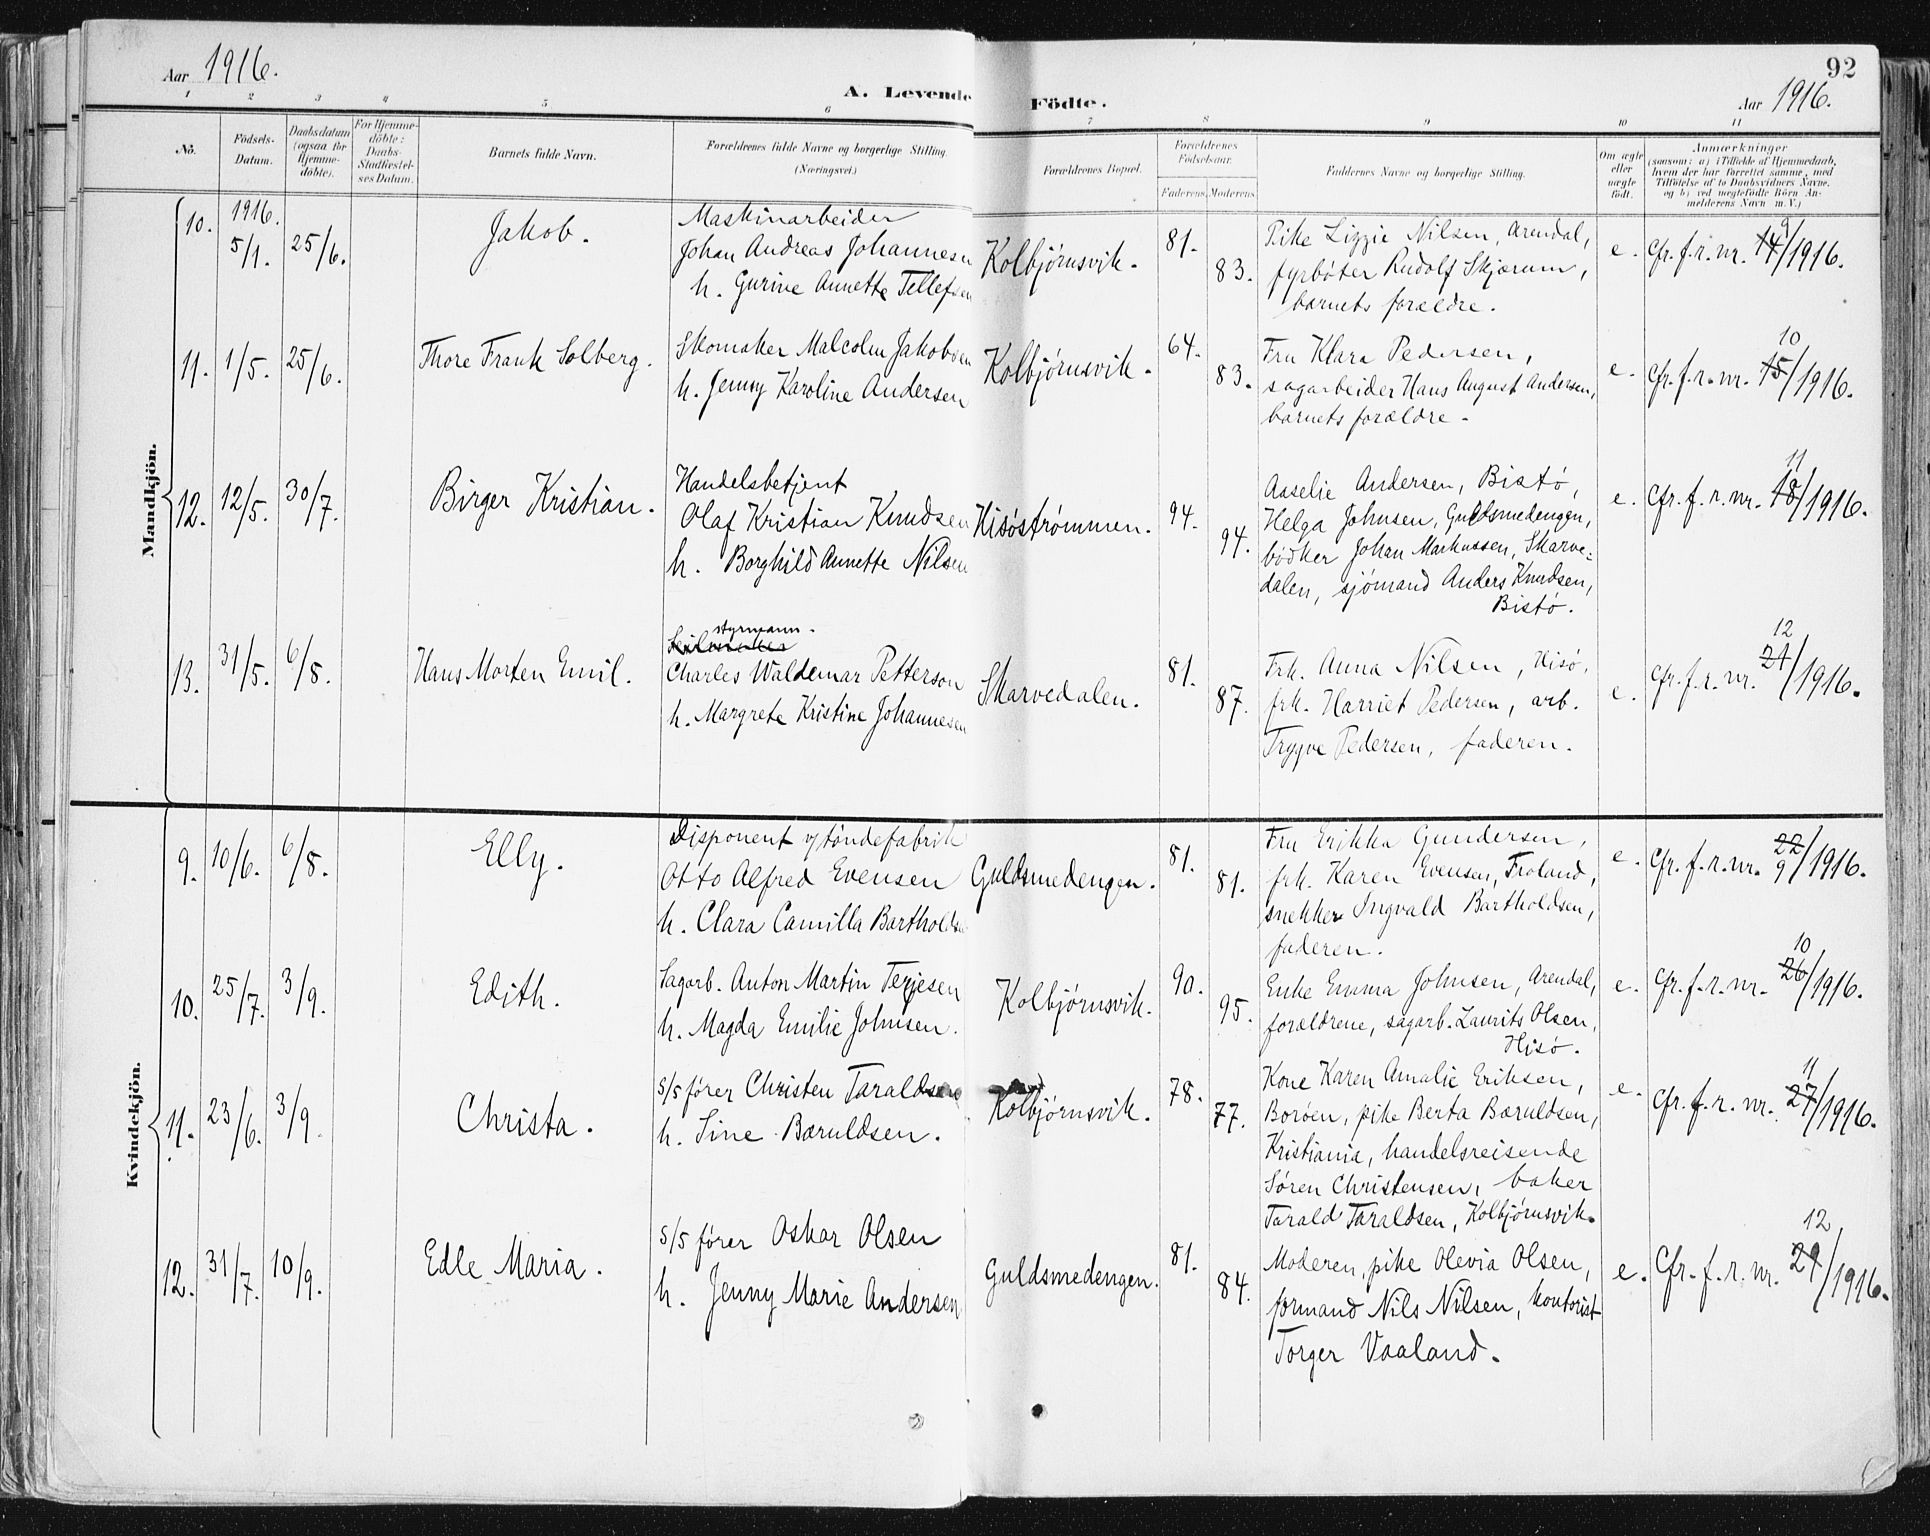 Aar 1916.
A. Levende Födte.
92
Aar 1916.
1 2 3 4 5 6 7 8 9 10 11
No.
Födsels-
Datum.
Daabsdatum
(ogsaa for
Hjemme-
döbte).
For Hjemme-
döbte:
Daabs-
Stadfæstel-
ses Datum.
Barnets fulde Navn.
Forældrenes fulde Navne og borgerlige Stilling.
(Næringsvei.)
Forældrenes Bopæl.
Forældrenes
Födselsaar.
Faderens. Moderens.
Faddernes Navne og borgerlige Stilling.
Om ægte
eller
uægte
födt.
Anmærkninger
(saasom: a) i Tilfælde af Hjemmedaab,
hvem der har forrettet samme, med
Tilföielse af to Daabsvidners Navne.
og b) ved uægtefödte Börn An-
melderens Navn m. V.)
Mandkjön.
10. 1916. 5/1. 25/6. Jakob.
Maskinarbeider
Johan Andreas Johannesen
h. Gurine Annette Tellefsen
Kolbjørnsvik. 81. 83.
Pike Lizzie Nilsen, Arendal,
fyrbøter Rudolf Skjærum,
barnets forældre.
e. Cfr. f. r. nr. 14/1916.
9
11. 1/5. 25/6. Thore Frank Solberg.
Skomaker Malcolm Jakobsen
h. Jenny Karoline Andersen
Kolbjørnsvik. 64. 83.
Fru Klara Pedersen,
sagarbeider Hans August Andersen,
barnets forældre.
e. Cfr. f. r. nr. 15/1916.
10
12. 12/5. 30/7. Birger Kristian.
Handelsbetjent
Olaf Kristian Knudsen
h. Borghild Annette Nilsen
Hisøstrømmen. 94. 94.
Aaselie Andersen, Bistø,
Helga Johnsen, Guldsmedengen,
bødker Johan Markussen, Skarve-
dalen, sjømand Anders Knudsen,
Bistø.
e. Cfr. f. r. nr. 18/1916.
11
13. 31/5. 6/8. Hans Morten Emil.
styrmann.
Charles Waldemar Petterson
h. Margrete Kristine Johannesen
Skarvedalen. 81. 87.
Frk. Anna Nilsen, Hisø,
frk. Harriet Pedersen, arb.
Trygve Pedersen, faderen.
e. Cfr. f. r. nr. 21/1916.
12
Kvindekjön.
9. 10/6. 6/8. Elly.
Disponent v/ tøndefabrik
Otto Alfred Evensen
h. Clara Camilla Bartholdsen
Guldsmedengen. 81. 81.
Fru Erikka Gundersen,
frk. Karen Evensen, Froland,
snekker Ingvald Bartholdsen,
faderen.
e. Cfr. f. r. nr. 22/1916.
9
10. 25/7. 3/9. Edith.
Sagarb. Anton Martin Terjesen
h. Magda Emilie Johnsen.
Kolbjørnsvik. 90. 95.
Enke Emma Johnsen, Arendal,
forældrene, sagarb. Laurits Olsen,
Hisø.
e. Cfr. f. r. nr. 26/1916.
10
11. 23/6. 3/9. Christa.
s/s fører Christen Taraldsen
h. Sine Bæruldsen.
Kolbjørnsvik. 78. 77.
Kone Karen Amalie Eriksen,
Borøen, pike Berta Bæruldsen,
Kristiania, handelsreisende
Søren Christensen, baker
Tarald Taraldsen, Kolbjørnsvik.
e. Cfr. f. r. nr. 27/1916.
11
12. 31/7. 10/9. Edle Maria.
s/s fører Oskar Olsen
h. Jenny Marie Andersen
Guldsmedengen. 81. 84.
Moderen, pike Olevia Olsen,
formand Nils Nilsen, kontorist
Torger Vaaland.
e. Cfr. f. r. nr. 29/1916.
12